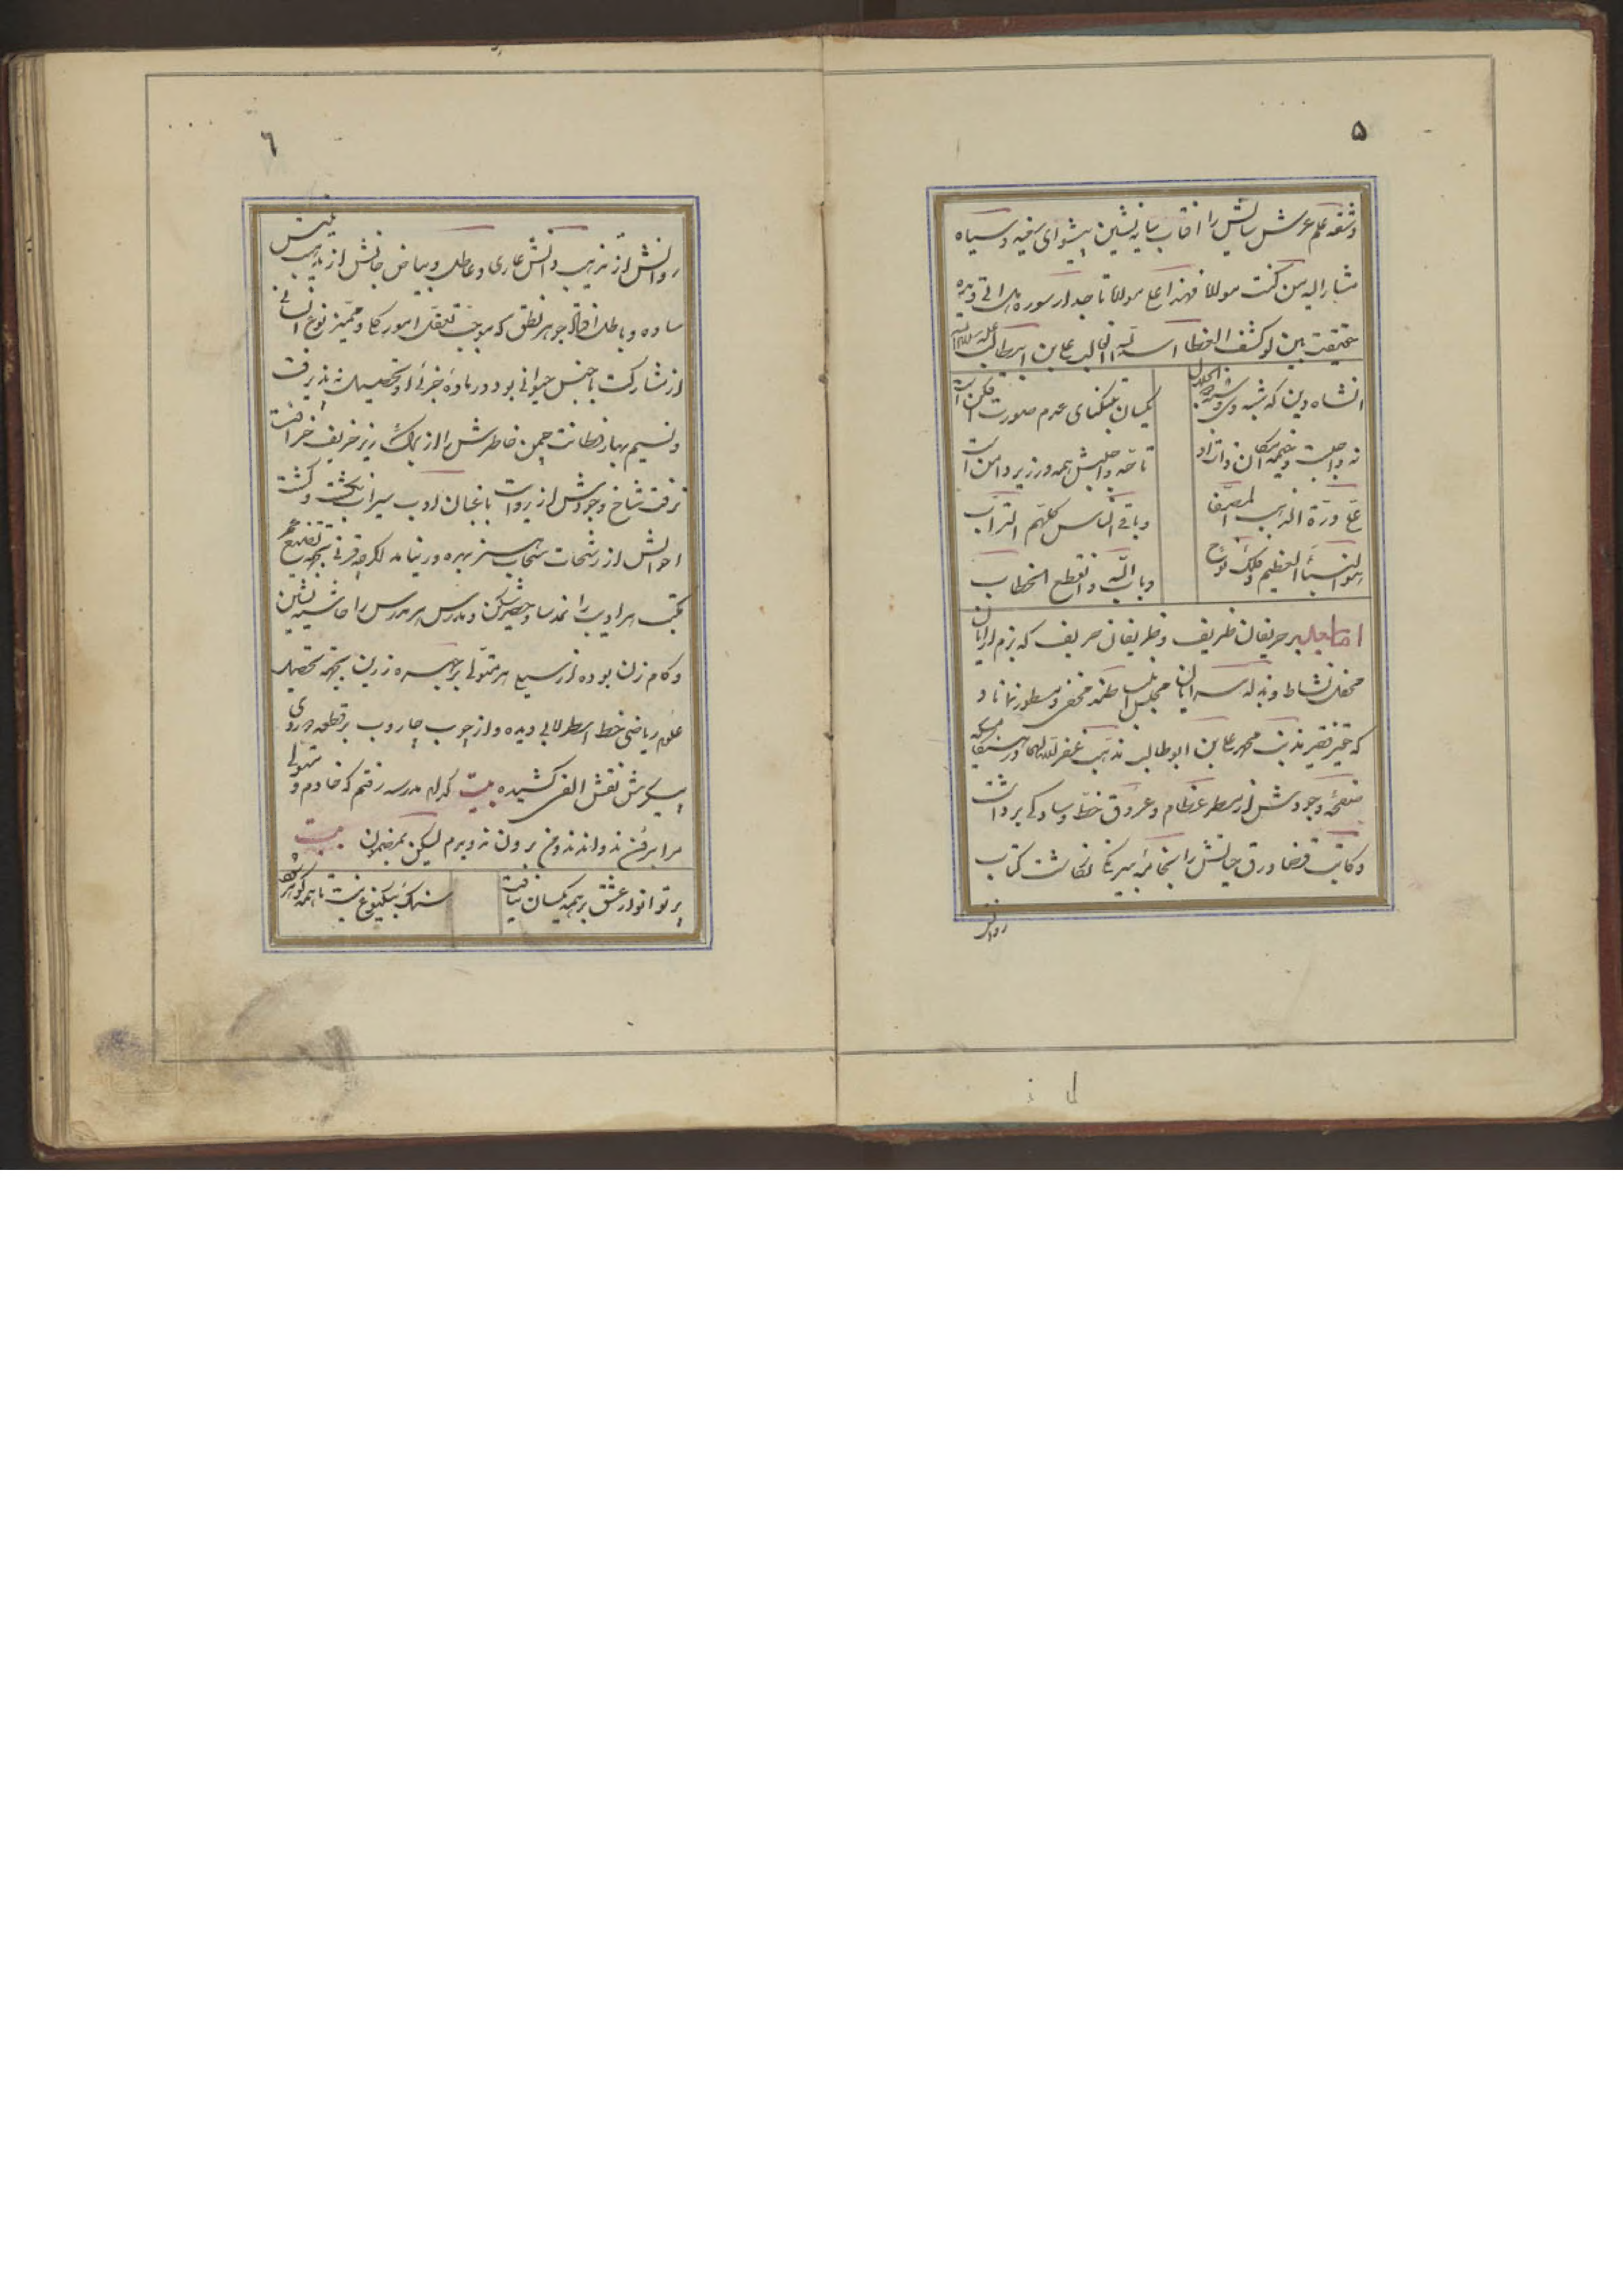 ۵
وشقه علم عرش سایش را آفتاب سایه نشین پیشوای سفید و سیاه
مشار الیه من کنت مولاه فهذا علی مولاه تاجدار سوره هل اتی دیده
حقیقت بین لو کشف الغطا اسد الله الغالب علی بن ابیطالب علیه السلام
انشاه دین که شبه وی و شبه ذوالجلال
یکسان بتنگنای عدم صورت
نه واجبست و خیمه مکان ذات او
تا حد واجبش همه در زیر دامن است
علی درة الذهب المصفا
وباقی الناس کلهم التراب
هو النبأ العظیم و فلک نوح
وباب الله وانقطع الخطاب
اما بعد بر حریفان ظریف و ظریفان حریف که بزم آرایان
محفل نشاط و بذله سرایان مجلس انبساطند مخفی و مستور نماناد
که حقیر فقیر مذنب محمد علی بن ابوطالب مذهب غفر الله لهما در
صفحه وجودش از مسطر عظام و عروق خط و سادگی برداشت
و کاتب قضا ورق حیاتش را بخامه نیرنگ نگاشت کتاب
روانش
٦
روانش از تذهیب دانش عاری و عاطل و بیاض جانش از تهذیب بینش
ساده و باطل افاضه جوهر نطق که موجب تعقل امور کلی و ممیز نوع انسانی
از مشارکت با جنس حیوانی بود در ماده جزئی او تحصیل نه پذیرفت
و نسیم بهار فطانت چمن خاطرش را از برگ ریز خریف خرافت
نرفت شاخ وجودش از پروات باغبان ادب سیراب نگشت و کشت
احوالش از رشحات سحاب هنر بهره ور نیامد اگرچه قرنی بجهة تضییع عمر
مکتب هر ادیب را نمد سا و حصیر شکن و مدرس هر مدرس را حاشیه نشین
و گام زن بوده از سیلی هر متولی بر چهره زرین بجهة تحصیل
علوم ریاضی خط اسطرلابی دیده و از چوب جاروب بر قطعه روی
پیکرش نقش الفی کشیده بیت کدام مدرسه رفتم که خادم و متولی
مرا بر فن ندواندند و من برون ندویدم لیکن بمضمون بیت
پرتو انوار عشق بر همه یکسان نتافت
سنگ بیکنوع نیست تا همه گوهر شود